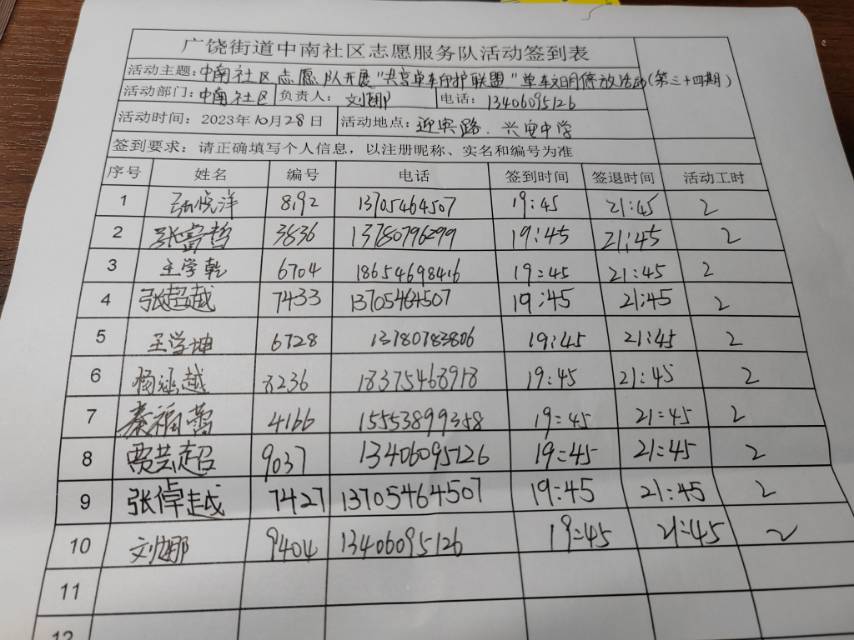 广饶街道中南社区志愿服务队活动签到表
活动主题：中南社区志愿队开展“共享单车守护联盟”单车文明停放活动(第三十四期)
活动部门：中南社区 负责人：刘娜 电话：13406095126
活动时间：2023年10月28日 活动地点：迎宾路、兴电中学
签到要求：请正确填写个人信息，以注册昵称、实名和编号为准
序号 姓名 编号 电话 签到时间 签退时间 活动工时
1 8192 13705464507 19:45 21:45 2
2 张富哲 3836 13780796299 19:45 21:45 2
3 王学乾 6704 18654698416 19:45 21:45 2
4 张超越 7433 13705464507 19:45 21:45 2
5 王学坤 6728 13780783806 19:45 21:45 2
6 杨涵越 8236 18375468918 19:45 21:45 2
7 秦福蕾 4166 15553899358 19:45 21:45 2
8 贾芸超 9037 13406095126 19:45 21:45 2
9 张倬越 7427 13705464507 19:45 21:45 2
10 刘娜 9404 13406095126 19:45 21:45 2
11
12